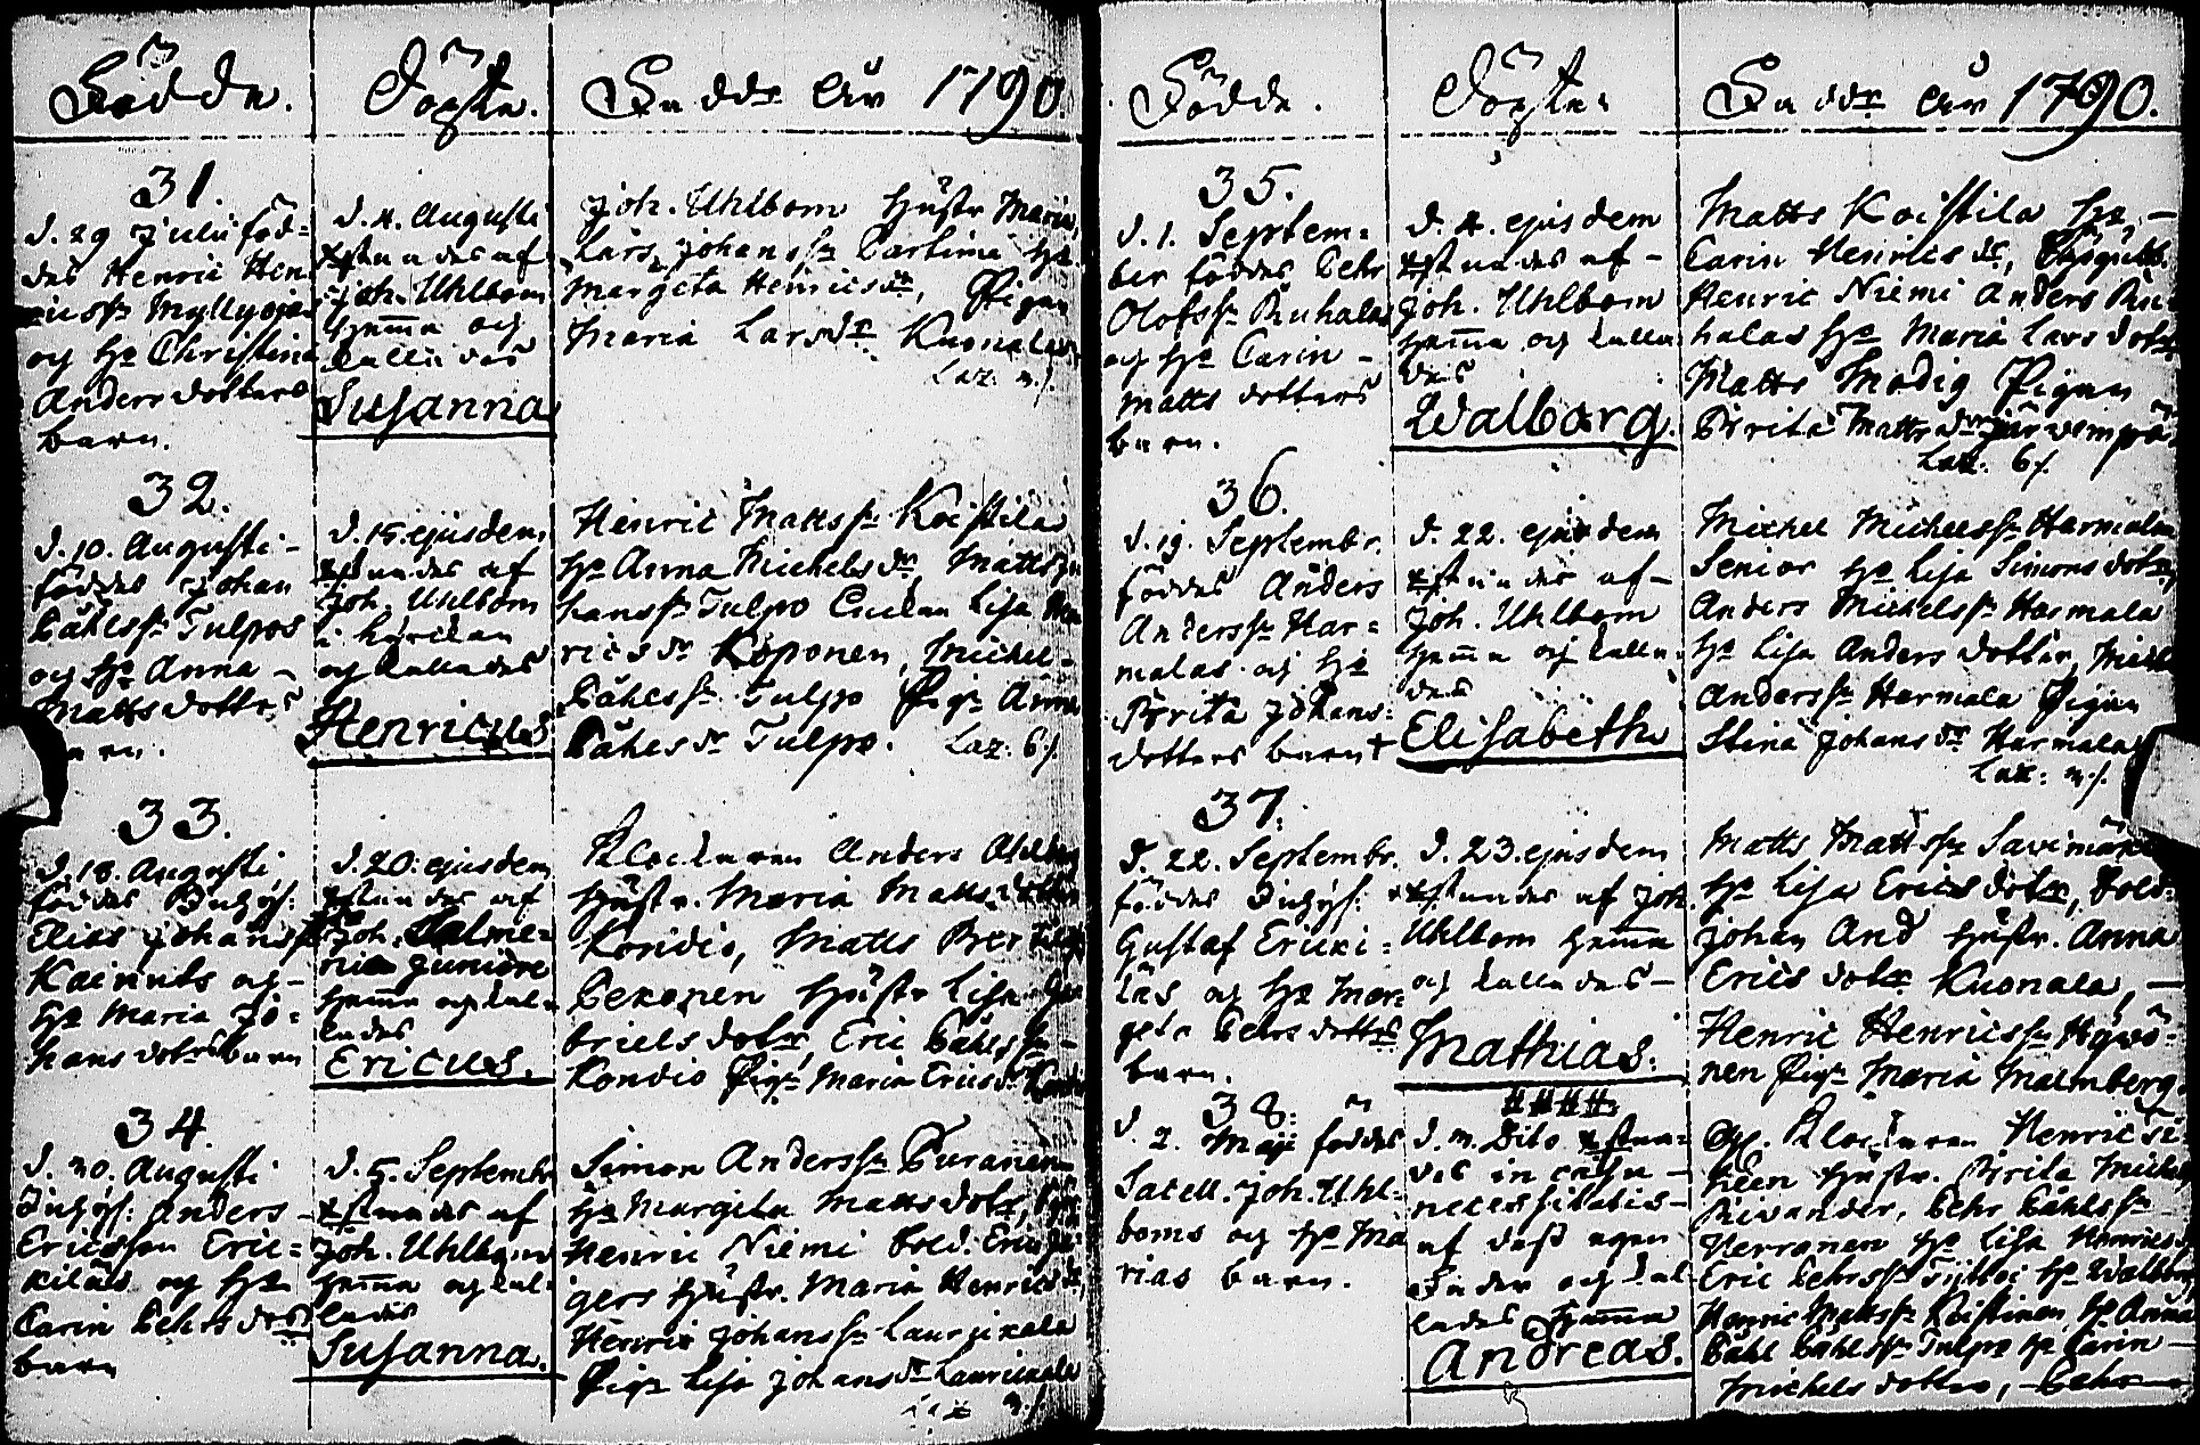 Födde.
Döpte.
Faddr åhr 1790.
31.
d. 29 Julii föd=
des Henric Hen
ricss: Myllyoja
og H: Christina
Anders dotters
barn.
d. 4. Augusti
Xstnades af
Joh. Uhlbom
hemma og
kallades
Susanna
Joh. Uhlbom hustr Maria,
Lars Johanss: Hu
Margeta Henricsdr, Pigan
Maria Larsdr Kuonala
Laz: 3/.
32.
d. 10. Augusti-
föddes Johan
Påhlss: Tulpos
og Hu Anna-
Matts dotters
barn.
d. 15. ejusdem
Xstnades af
Joh. Uhlbom
i kyrckan
og kallades
Henricus
Henric Mattss: Koistila
Hu Anna Michelsdr, Matts Jo
hanss: Tulpo Enckan Lisa Hen
ricsdr Koponen, Michel-
Påhlss: Tulpo Pig: Anna
Påhlsdr Tulpo. Laz: 6/.
33.
d. 18. Augusti
föddes
Elias Johanss:
Kainuts og-
Hu Maria Jo=
hans dotrs barn
d. 20. ejusdem
Xstnades af
Joh. Salme=
nio Juniore
hemma og kal=
lades
Ericus.
Klockaren Anders Ahlbom
Hustr. Maria Matts dotter
Kondio, Matts
Pekonen Hustr Lisa Ga
briels dotr Eric Påhls
Kondio Pig: Maria Ericsdr
34.
d. 30. Augusti
Anders-
Ericsson Eric=
kiläs og Hu
Carin Pehrs dotrs
barn
d. 5. Septembr
Xstnades af
Joh. Uhlbom
hemma og kal=
lades
Susanna.
Simon Anderss: Puranen
Hu Margeta Matts dotr,
Henric Niemi Sold. Eric
gers Hustr. Maria Henricsdr,
Henric Johanss: Laurikala
Pig: Lisa Johansdr Laurikala
Födde.
Döpte.
Faddr åhr 1790.
35.
d. 1. Septem=
ber föddes Pehr
Olofss: Ruhalas
og Hu Carin-
Matts dotters
barn.
d. 4. ejusdem
Xstnades af-
Joh. Uhlbom
hemma og kalla
des
Walborg.
Matts Koistila Hu-
Carin Henricsdr,
Henric Niemi Anders Ru
halas Hu Maria Lars dotr
Matts Modig Pigan
Brita Mattsdr Järwempä
Laz: 6/.
36.
d. 19. Septembr.
föddes Anders
Anderss: Har=
malas og Hu
Brita Johans=
dotters barn +
d. 22. ejusdem
Xstnades af-
Joh. Uhlbom
hemma og kalla=
des
Elisabeth
Michel Michelss: Harmala
Senior Hu Lisa Simons dotr,
Anders Michelss: Harmala
Hu Lisa Anders dotter, Michel
Anderss: Harmala Pigan
Stina Johansdr Harmala
Laz: 3/.
37.
d. 22. Septembr.
föddes
Gustaf Ericki=
läs og Hu Mar=
geta Pehrs dotrs
barn.
d. 23. ejusdem
Xstnades af Joh.
Uhlbom hemma
og kallades-
Mathias.
Matts Mattss: Savimäki
Hu Lisa Erics dotr, Sold=
Johan And Hustr. Anna
Erics dotr Kuonala,-
Henric Henricss: Hyvö=
nen Pig: Maria Malmberg.
38.
d. 2. Maji föddes
Sacell. Joh. Uhl=
boms og Hu Ma
rias barn.
d. 3. Dito Xstna=
des in casu-
necessitatis-
af dess egen
fader og kal
lades hemma
Andreas.
Klockaren Henric
Hustr. Brita Michels
Pehr Påhlss:
Kerranen Hu Lisa Henricsdr
Eric Pehrss: Hu Walborg
Henric Mattss: Koistinen, Hu Anna
Påhl Påhlss: Tulpo Hu Carin-
Michels dotter, Pehr